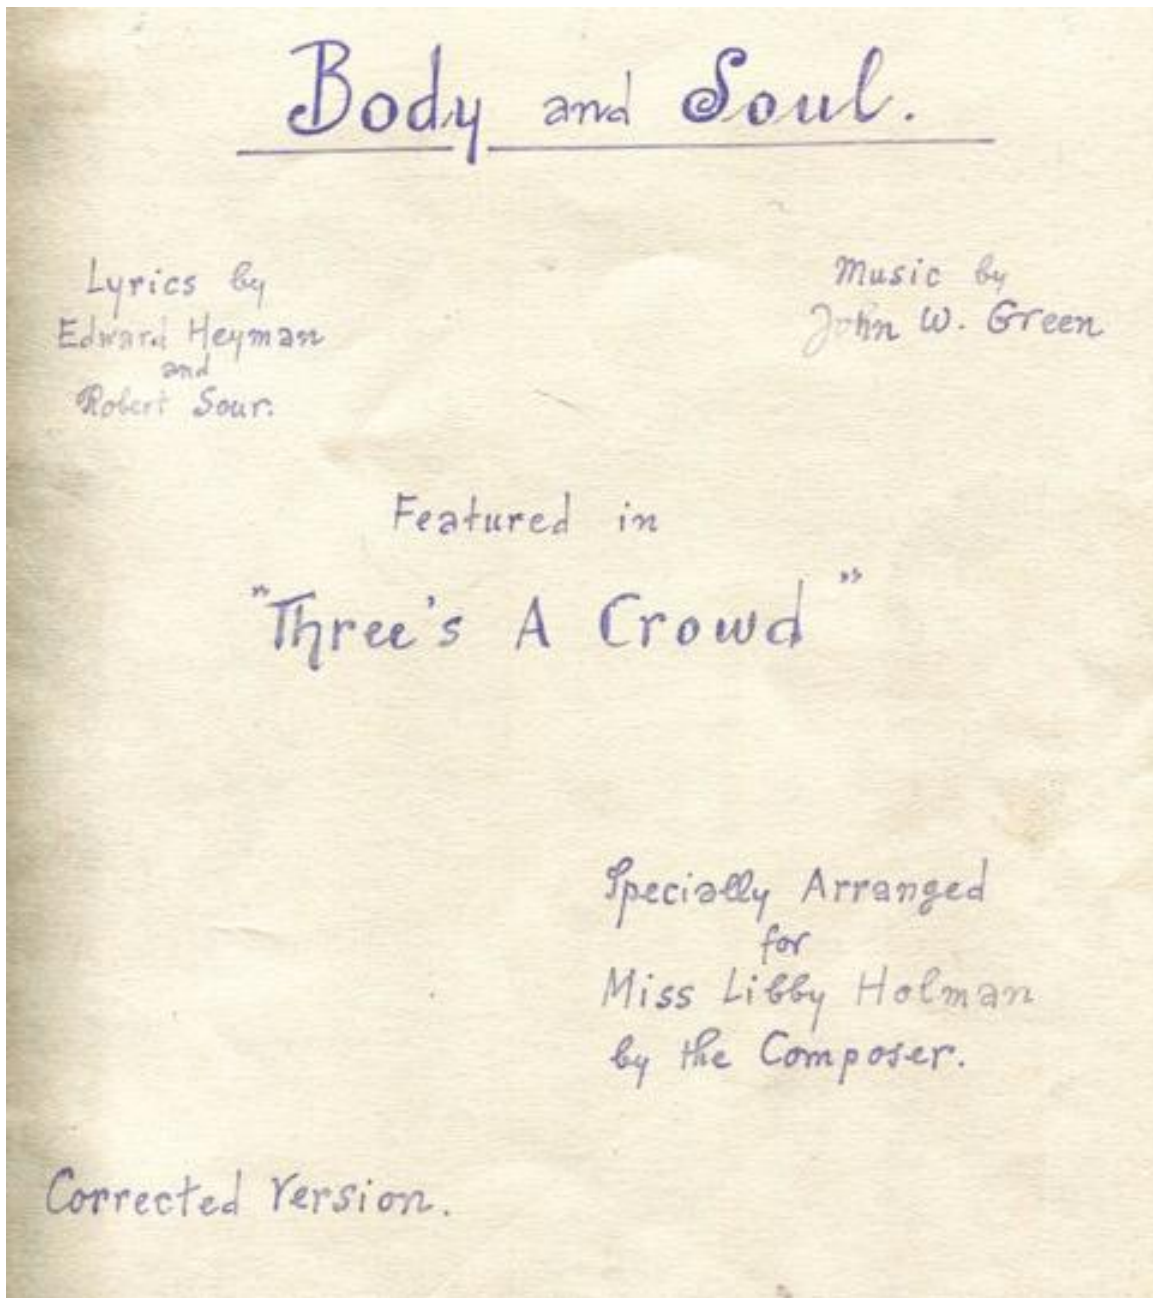 Body and Soul.
Lyrics by
Edward Heyman
and
Robert Sour.
Music by
John W. Green
Featured in
"Three's A Crowd"
Specially Arranged
for
Miss Libby Holman
by the Composer.
Corrected Version.